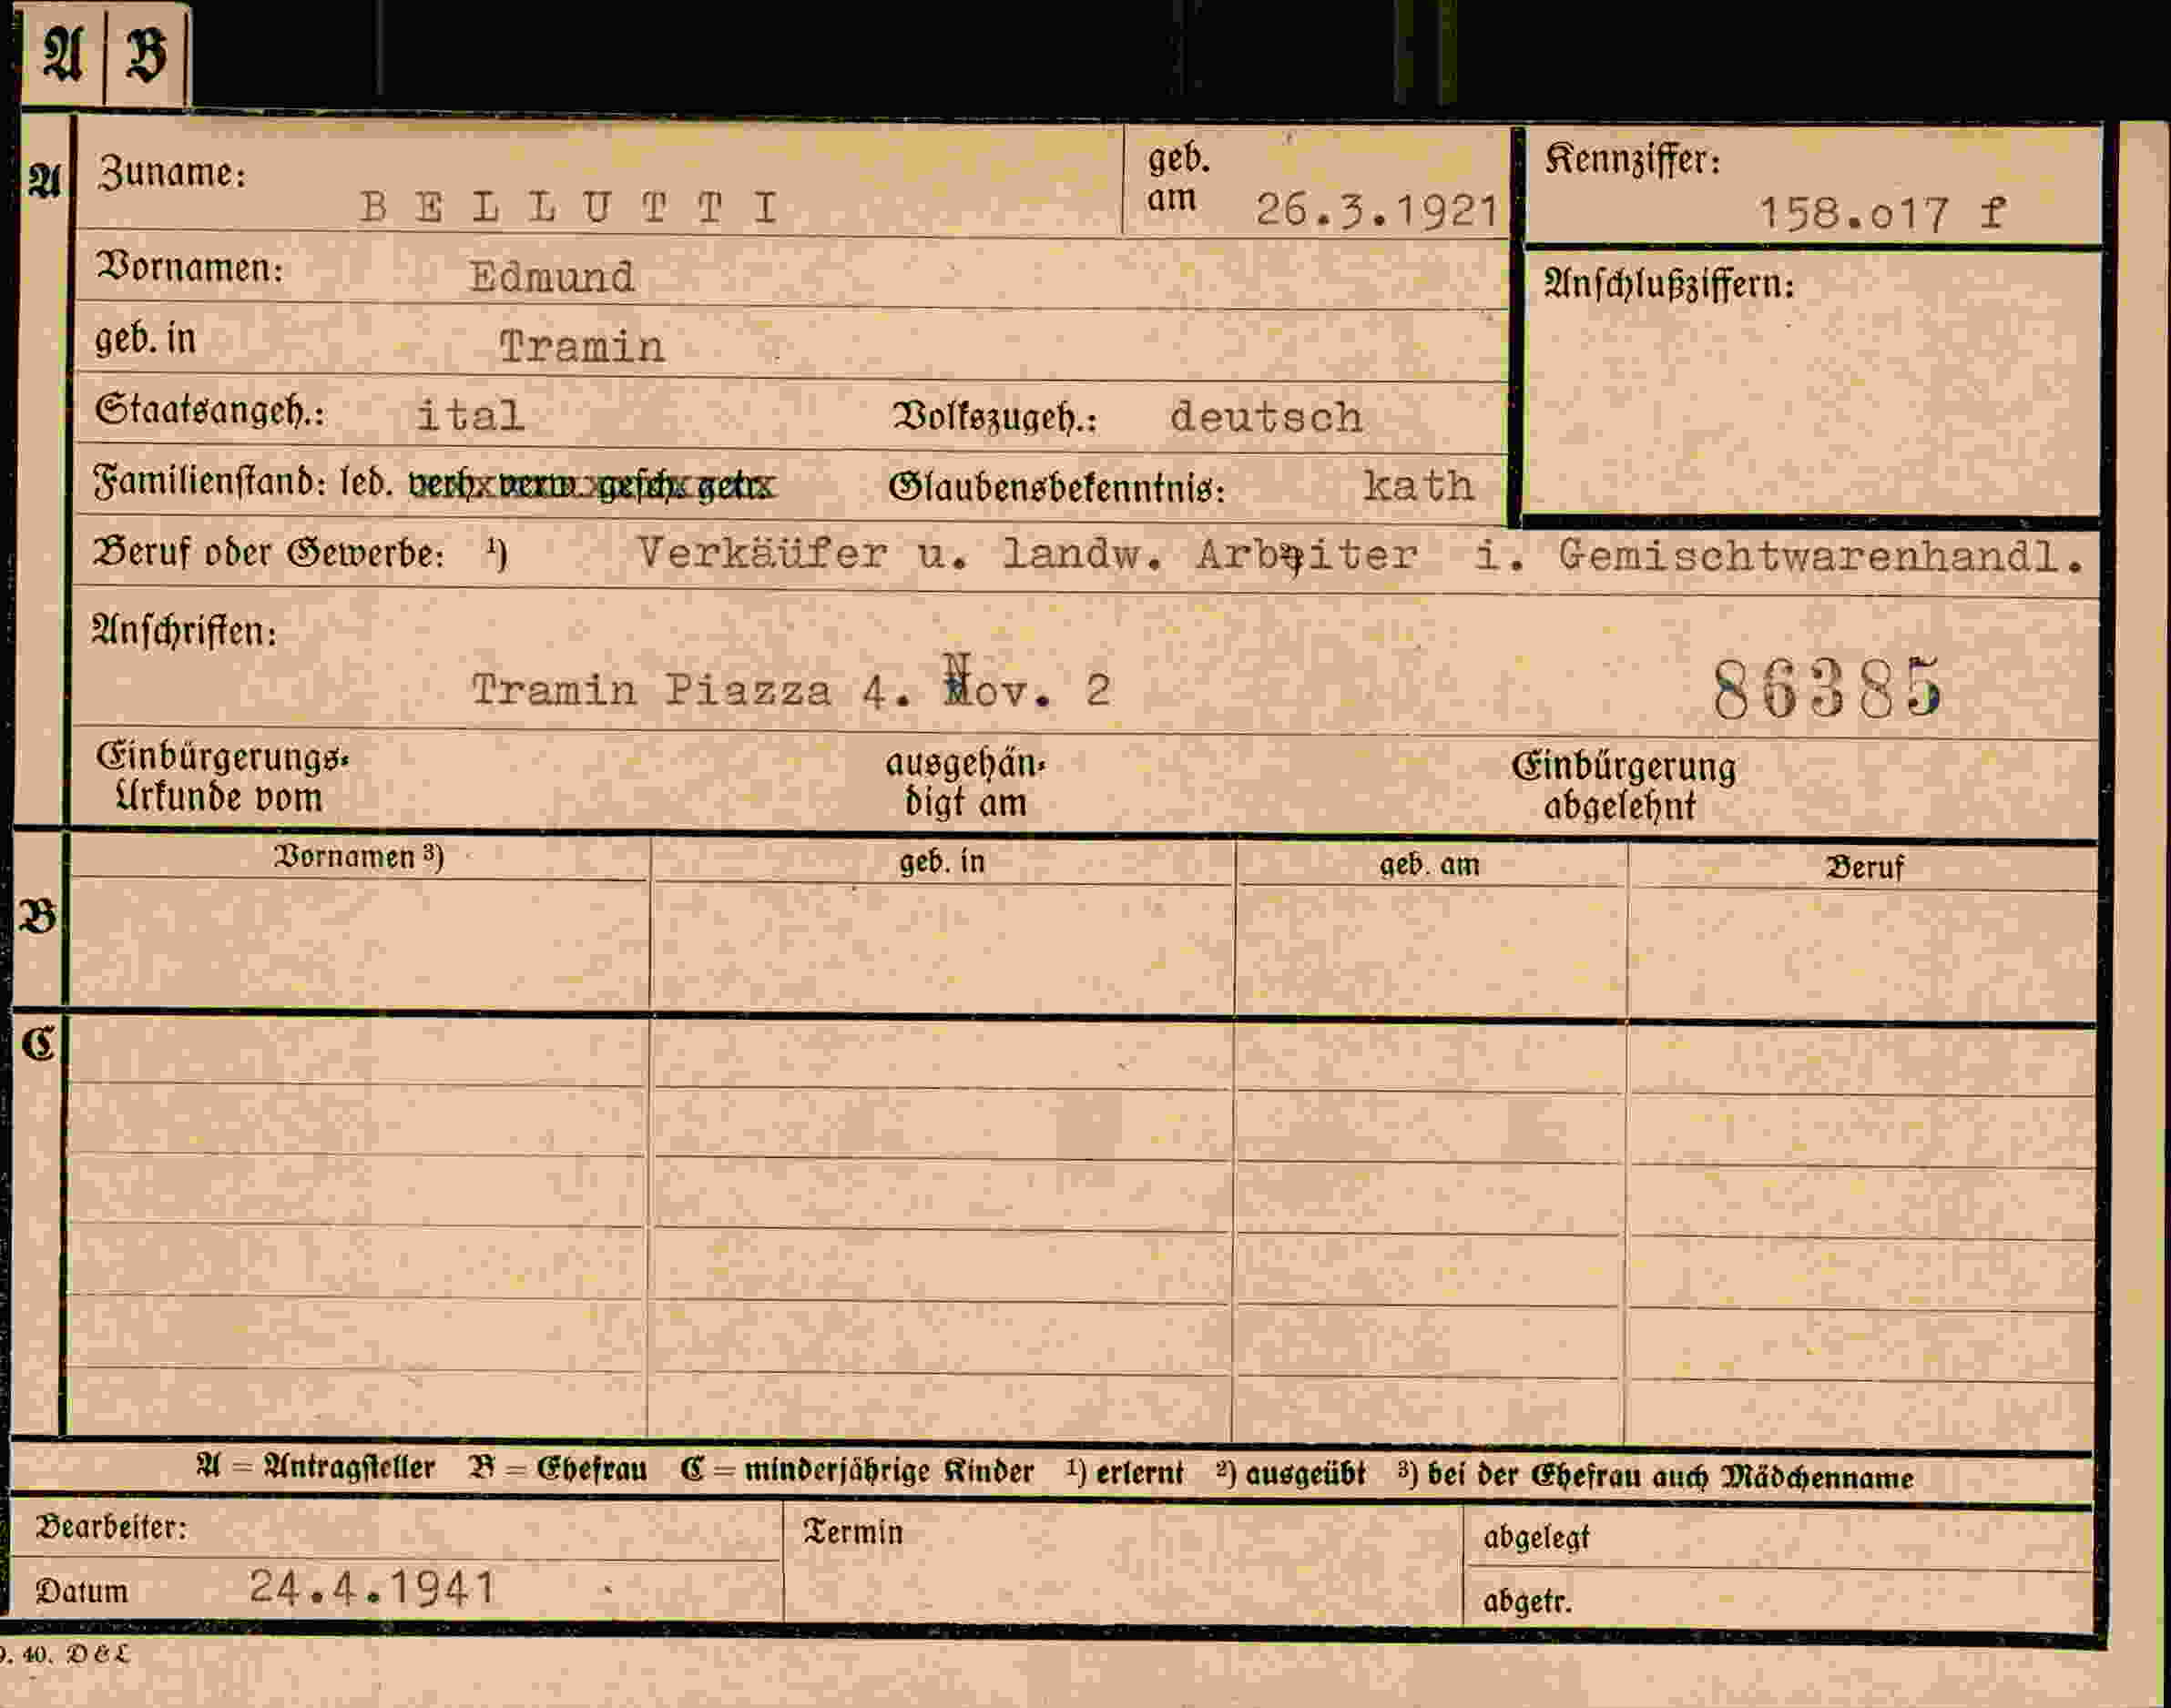 A B
A Zuname: BELLUTTI geb. am 26.3.1921 Kennziffer: 158.o17 f
Vornamen: Edmund Anschlußziffern:
geb. in Tramin
Staatsangeh.: ital Volkszugeh.: deutsch
Familienstand: led. verh. verw. gesch. getr. Glaubensbekenntnis: kath
Beruf oder Gewerbe: ¹) Verkäüfer u. landw. Arbeiter i. Gemischtwarenhandl.
Anschriften:
Tramin Piazza 4. Nov. 2 86385
Einbürgerungs- ausgehän- Einbürgerung
Urkunde vom digt am abgelehnt
B Vornamen ³) geb. in geb. am Beruf
C
A = Antragsteller B = Ehefrau C = minderjährige Kinder ¹) erlernt ²) ausgeübt ³) bei der Ehefrau auch Mädchenname
Bearbeiter: Termin abgelegt
Datum 24.4.1941 abgetr.
40. D&L